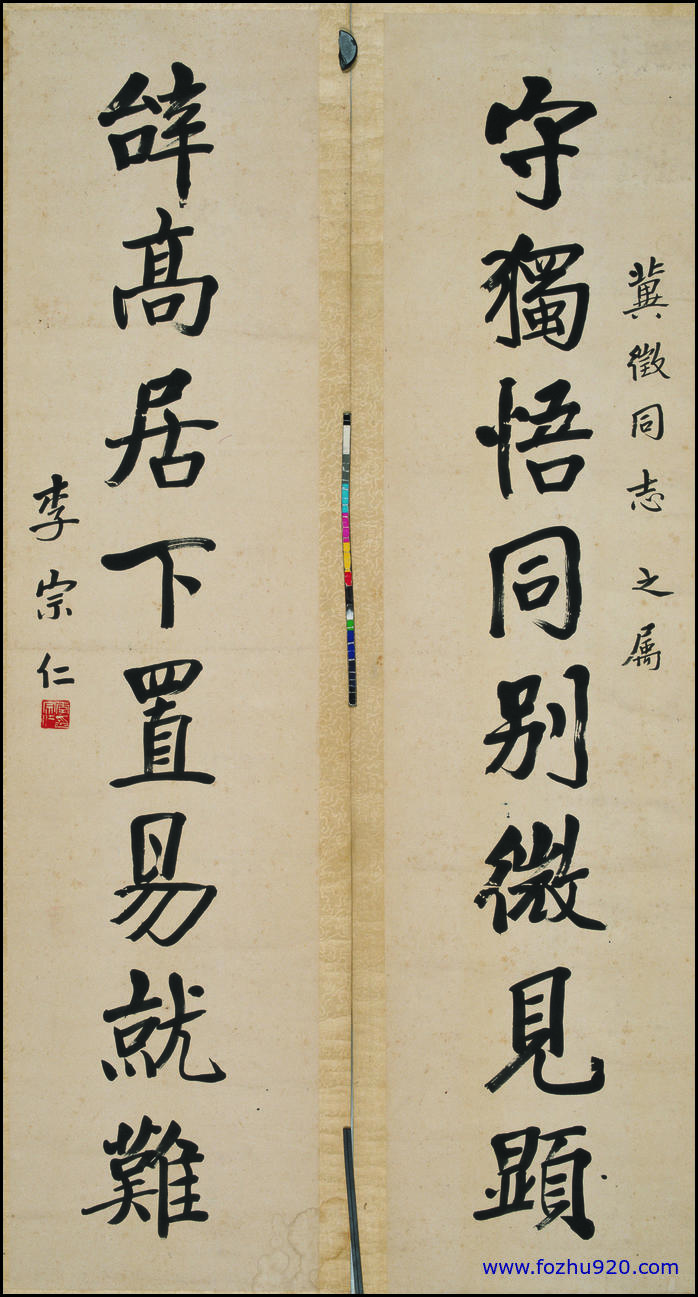 冀徵同志之属
守獨悟同别微見顯
辤高居下置易就難
李宗仁
www.fozhu920.com